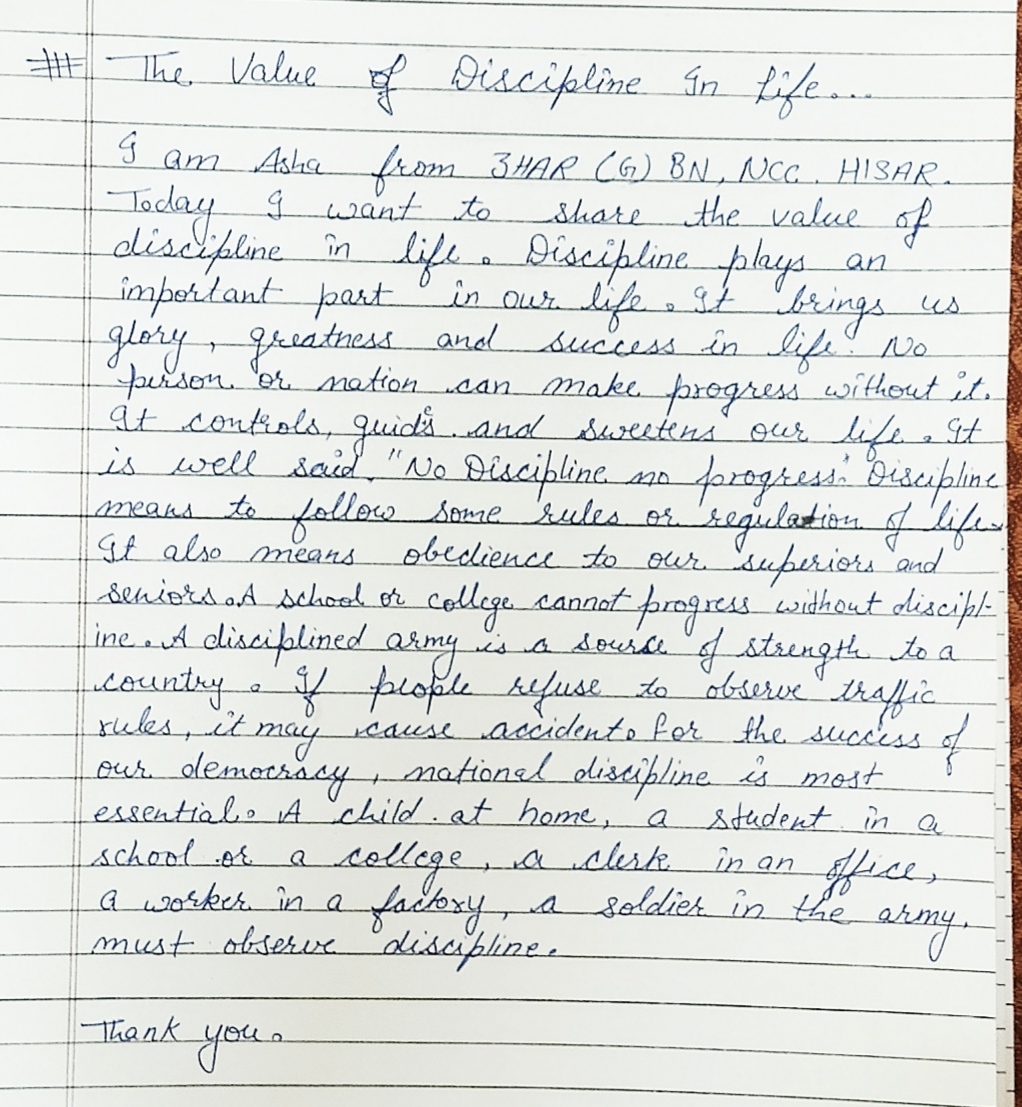 The Value of Discipline In Life...
I am Asha from 3HAR (G) BN, NCC. HISAR.
Today I want to share the value of
discipline in life. Discipline plays an
important part in our life. It brings us
glory, greatness and success in life. No
person or nation can make progress without it.
It controls, guides and sweetens our life. It
is well said, "No Discipline no progress." Discipline
means to follow some rules or regulation of life.
It also means obedience to our superiors and
seniors. A school or college cannot progress without discipl-
ine. A disciplined army is a source of strength to a
country. If people refuse to observe traffic
rules, it may cause accident. For the success of
our democracy, national discipline is most
essential. A child at home, a student in a
school or a college, a clerk in an office,
a worker in a factory, a soldier in the army.
must observe discipline.
Thank you.